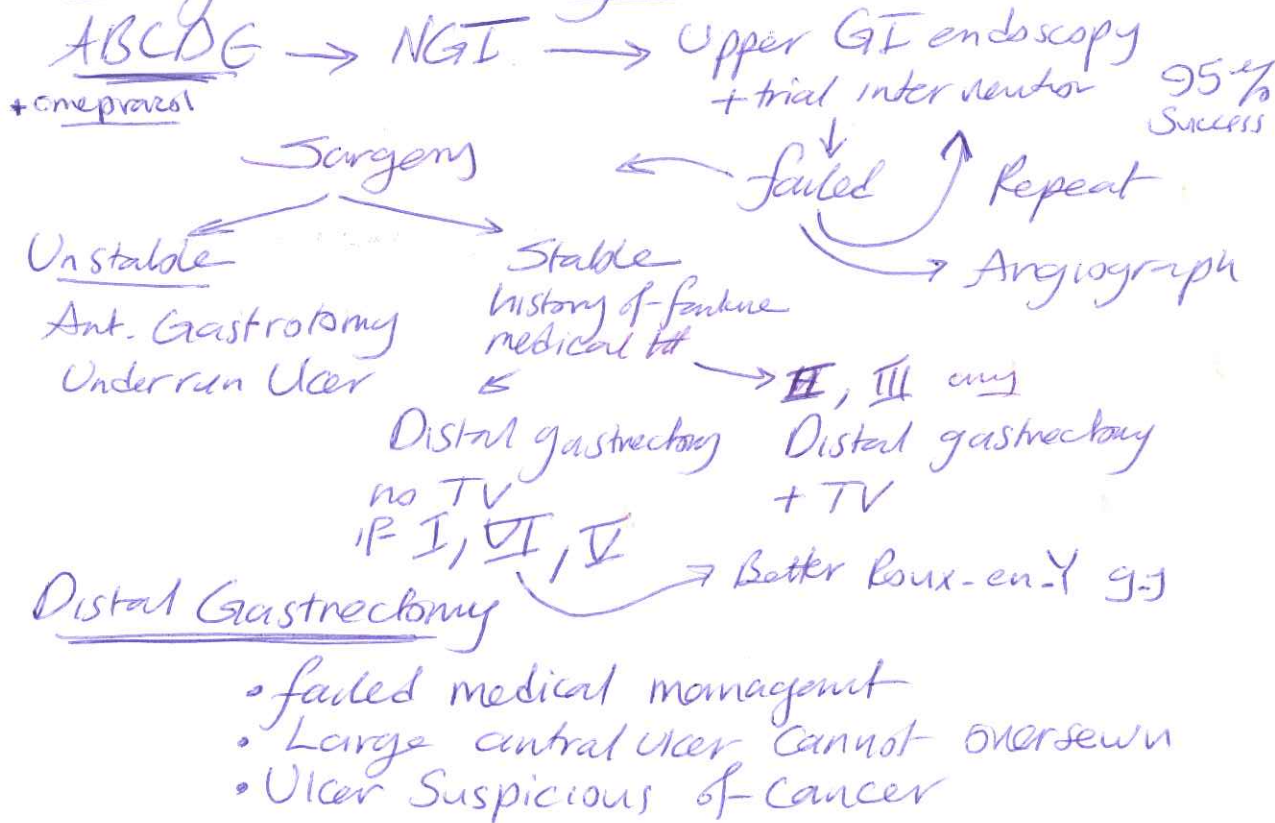 ABCDE → NGT → Upper GI endoscopy
+ omeprazol
+ trial intervention 95% Success
Surgery ← failed Repeat
→ Angiograph
Unstable
Ant. Gastrotomy
Underrun Ulcer
Stable
history of failure
medical ttt
Distal gastrectomy
no TV
if I, VI, V
II, III any
Distal gastrectomy
+ TV
→ Better Roux-en-Y g-j
Distal Gastrectomy
• failed medical managemt
• Large antral ulcer cannot oversewn
• Ulcer Suspicious of Cancer